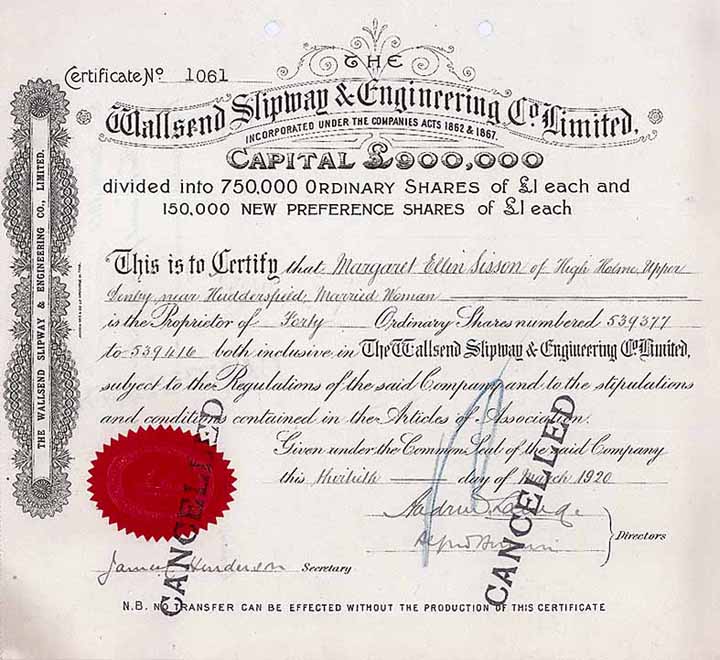 Certificate No 1061
THE
Wallsend Slipway & Engineering Co. Limited.
INCORPORATED UNDER THE COMPANIES ACTS 1862 & 1867.
CAPITAL £900,000
divided into 750,000 ORDINARY SHARES of £1 each and
150,000 NEW PREFERENCE SHARES of £1 each
This is to Certify that Margaret Ellin Sisson of High Holme, Upper
Denby, near Huddersfield, Married Woman
is the Proprietor of Forty Ordinary Shares numbered 539377
to 539416 both inclusive in The Wallsend Slipway & Engineering Co Limited,
subject to the Regulations of the said Company and to the stipulations
and conditions contained in the Articles of Association.
Given under the Common Seal of the said Company
this thirtieth day of March 1920
Andrew Laing
Directors
James Henderson Secretary
N.B. NO TRANSFER CAN BE EFFECTED WITHOUT THE PRODUCTION OF THIS CERTIFICATE
THE WALLSEND SLIPWAY & ENGINEERING CO., LIMITED.
CANCELLED
CANCELLED